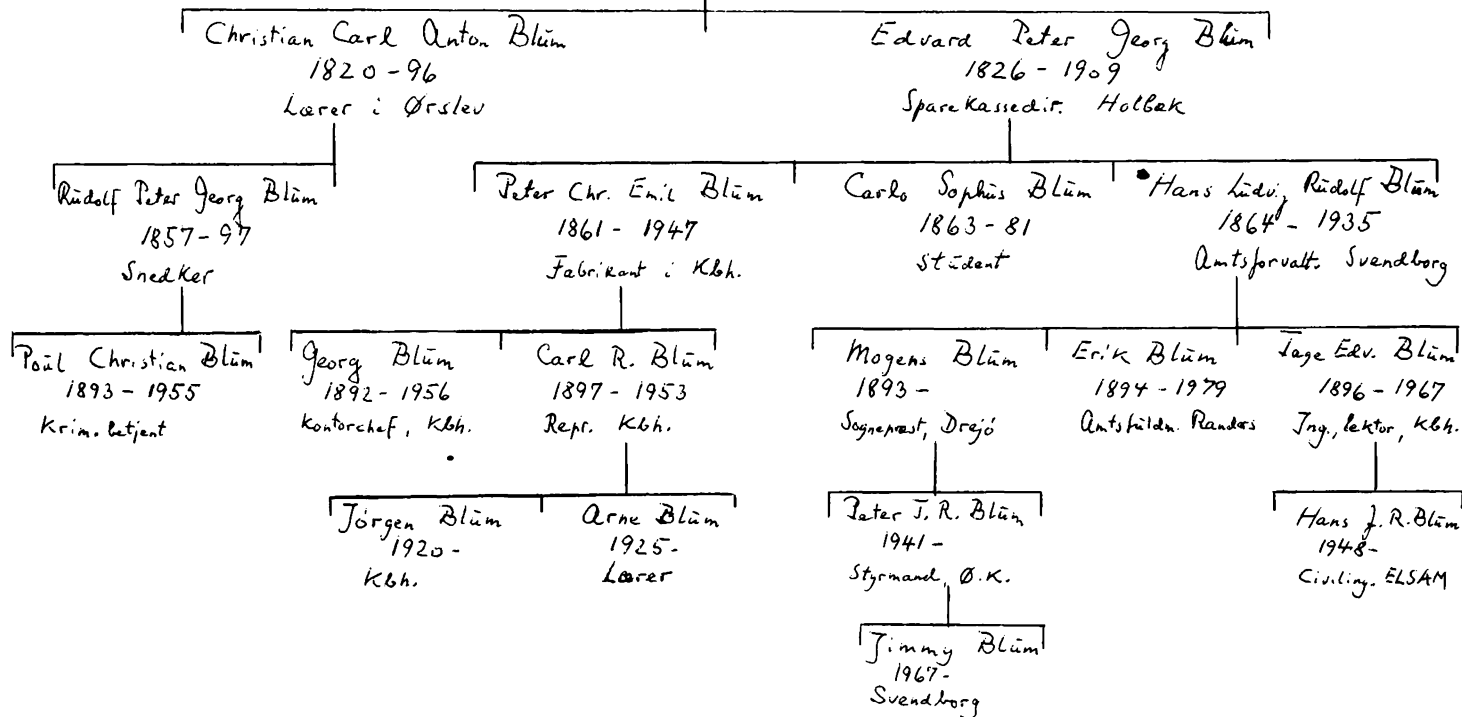 Christian Carl Anton Blūm
1820-96
Lærer i Ørslev
Edvard Peter Georg Blūm
1826-1909
Sparekassedir. Holbæk
Rūdolf Peter Georg Blūm
1857-97
Snedker
Peter Chr. Emil Blūm
1861-1947
Fabrikant i Kbh.
Carlo Sophūs Blūm
1863-81
Stūdent
Hans Lūdvig Rūdolf Blūm
1864-1935
Amtsforvalt. Svendborg
Poūl Christian Blūm
1893-1955
Krim.betjent
Georg Blūm
1892-1956
Kontorchef, Kbh.
Carl R. Blūm
1897-1953
Repr. Kbh.
Mogens Blūm
1893-
Sognepræst, Drejö
Erik Blūm
1894-1979
Amtsfūldm. Randers
Tage Edv. Blūm
1896-1967
Ing., lektor, Kbh.
Jörgen Blūm
1920-
Kbh.
Arne Blūm
1925-
Lærer
Peter T. R. Blūm
1941-
Styrmand, Ø.K.
Hans J. R. Blūm
1948-
Civiling. ELSAM
Jimmy Blūm
1967-
Svendborg